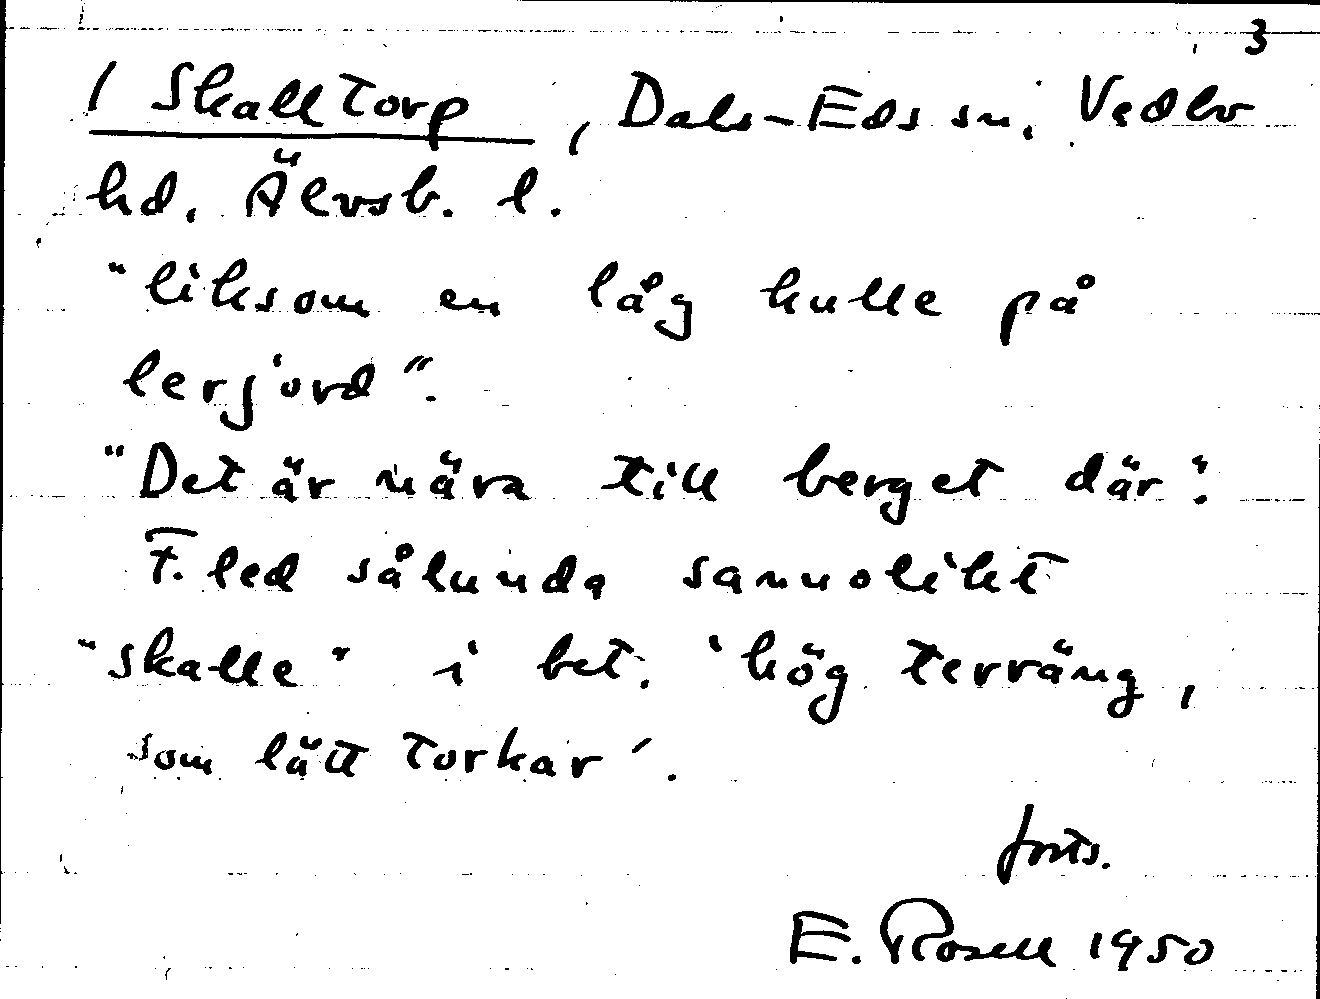 3
/ Skalltorp, Dals-Eds sn. Vedbo
hd. Älvsb. l.
"liksom en låg kulle på
lerjord".
"Det är nära till berget där".
F.led sålunda sannolikt
"skalle" i bet. 'hög terräng,
som lätt torkar'.
forts.
E. Rosell 1950